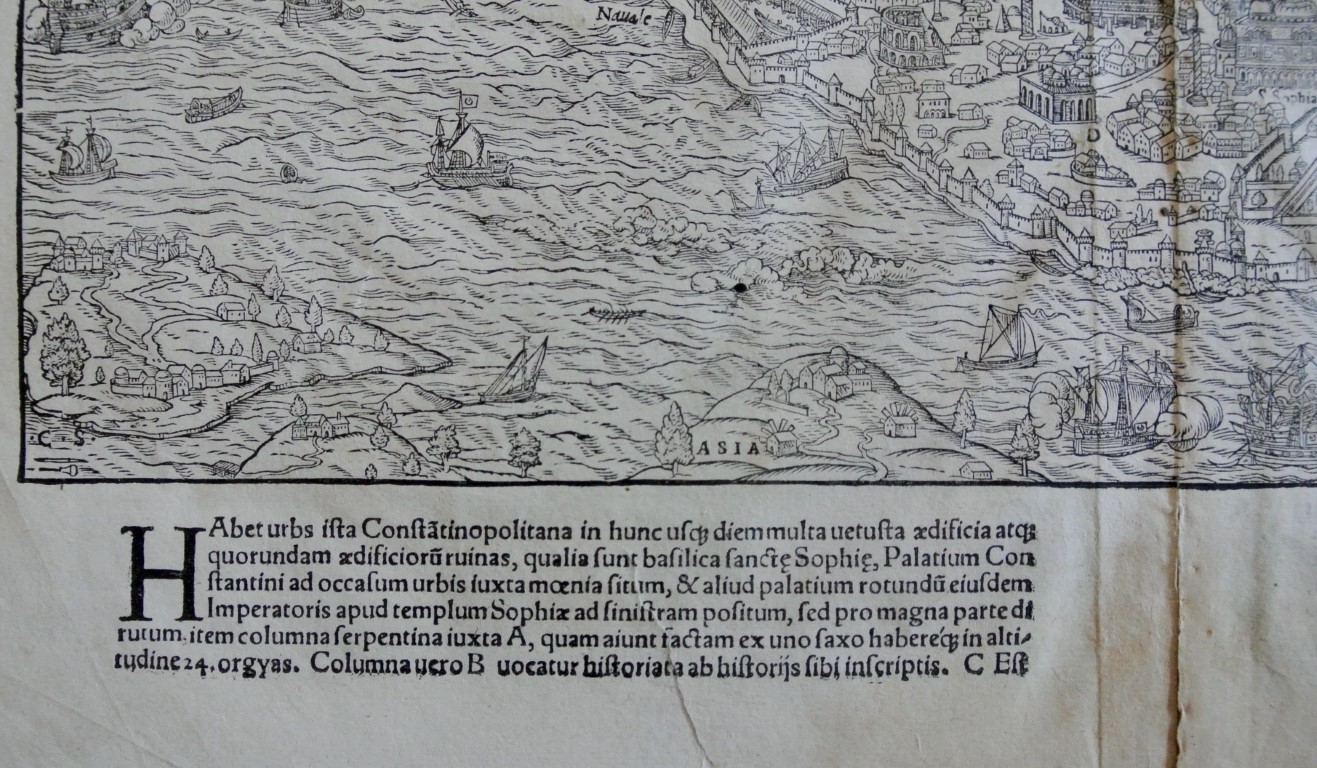 Nauale
S. Sophia
D
C S
ASIA
HAbet urbs ista Constãtinopolitana in hunc usq; diem multa uetusta ædificia atq;
quorundam ædificiorũ ruinas, qualia sunt basilica sanctę Sophię, Palatium Con
stantini ad occasum urbis iuxta mœnia situm, & aliud palatium rotundũ eiusdem
Imperatoris apud templum Sophiæ ad sinistram positum, sed pro magna parte di
rutum. item columna serpentina iuxta A, quam aiunt factam ex uno saxo habereq; in alti-
tudine 24. orgyas. Columna uero B uocatur historiata ab historijs sibi inscriptis. C Est